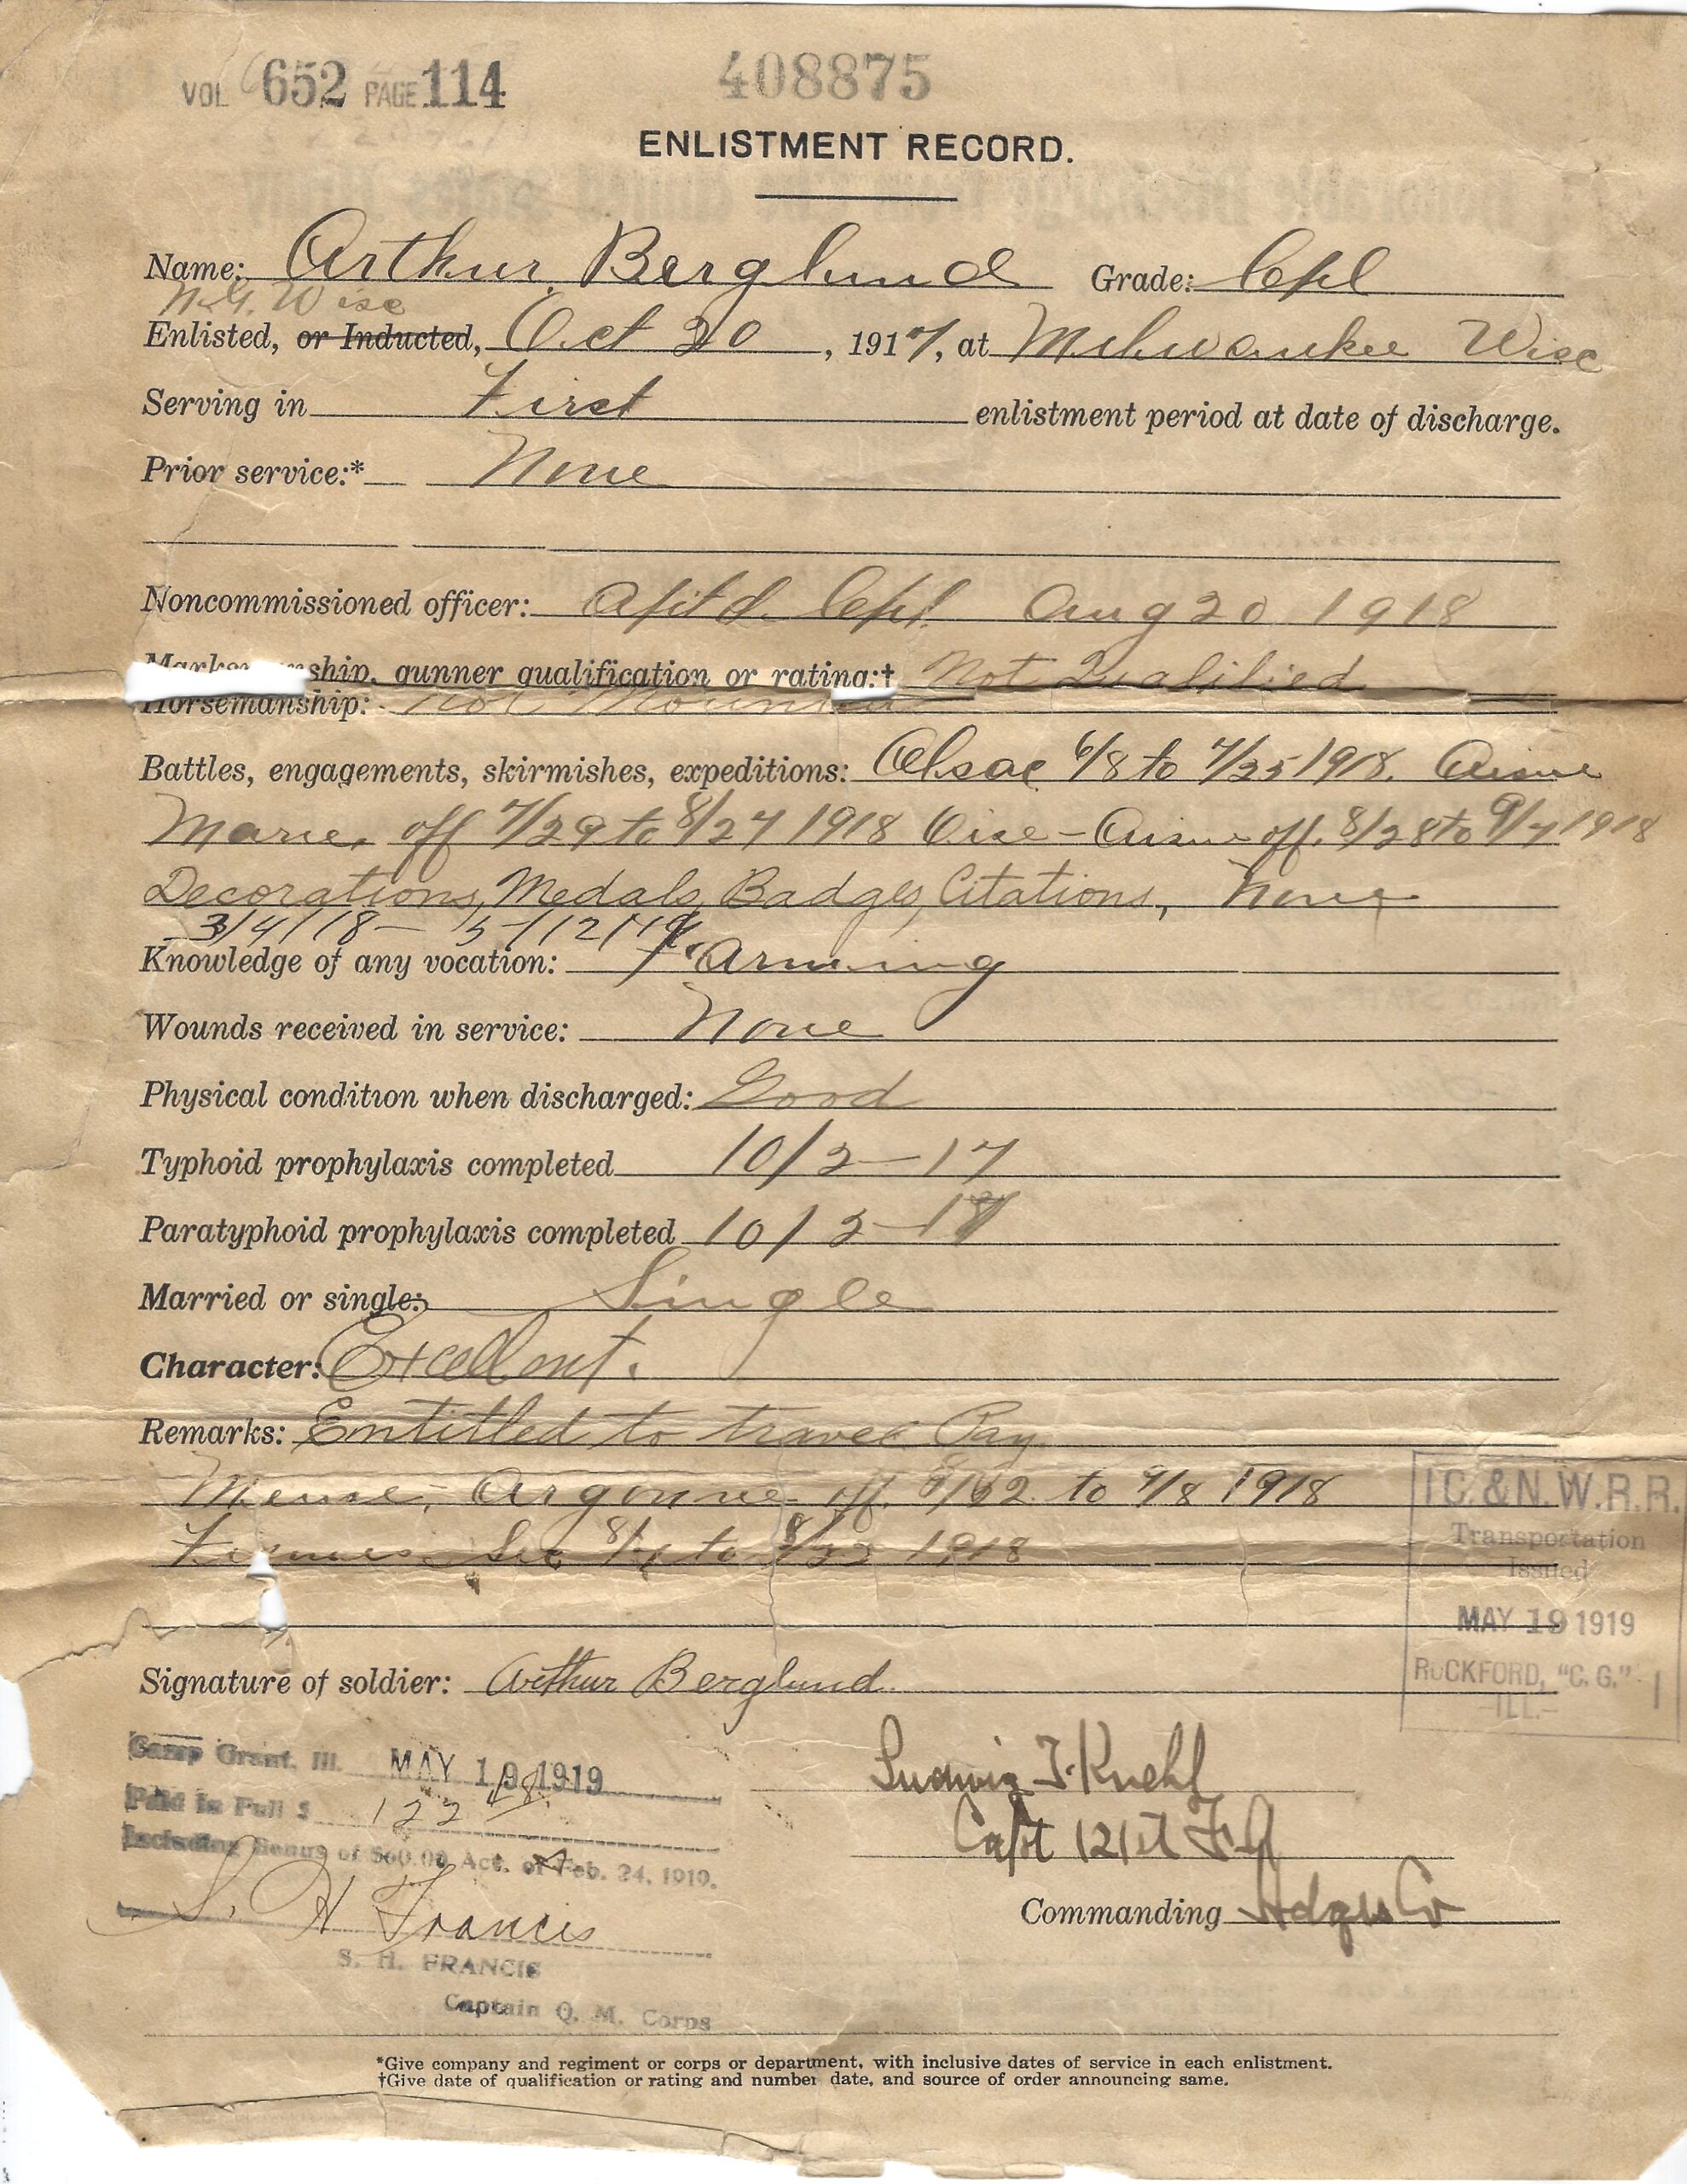 VOL 652 PAGE 114 408875
ENLISTMENT RECORD.
Name: Arthur Berglund Grade: Cpl
N.G. Wisc
Enlisted, or Inducted, Oct 20, 1917, at Milwaukee Wisc
Serving in First enlistment period at date of discharge.
Prior service:* None
Noncommissioned officer: Aptd. Cpl. Aug 20 1918
Marksmanship, gunner qualification or rating:† Not Qualified
Horsemanship: Not Mounted
Battles, engagements, skirmishes, expeditions: Alsac 6/8 to 7/25 1918. Aisne
Marne. off 7/29 to 8/27 1918 Oise-Aisne off. 8/28 to 9/7 1918
Decorations, Medals, Badges, Citations, None
3/4/18 - 5/12/19
Knowledge of any vocation: Farming
Wounds received in service: None
Physical condition when discharged: Good
Typhoid prophylaxis completed 10/2-17
Paratyphoid prophylaxis completed 10/2-17
Married or single: Single
Character: Excellent.
Remarks: Entitled to travel Pay
Meuse, Argonne off. to 1918
Sec to 1918
I C. & N. W. R. R.
Transportation
Issued
MAY 19 1919
ROCKFORD, "C. G."
-ILL.-
Signature of soldier: Arthur Berglund
Camp Grant. Ill. MAY 19 1919
Paid in Full $ 122
Including Bonus of $60.00 Act. of Feb. 24, 1919.
S. H Francis
S. H. FRANCIS
Captain Q. M. Corps
Ludwig T. Kuehl
Capt 121st F.A
Commanding Hdqrs Co
*Give company and regiment or corps or department, with inclusive dates of service in each enlistment.
†Give date of qualification or rating and number date, and source of order announcing same.